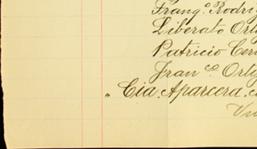 Frang.º Rodri
Liberato Orti
Patricio Cer
Fran.co Orti
Cia. Aparcera.